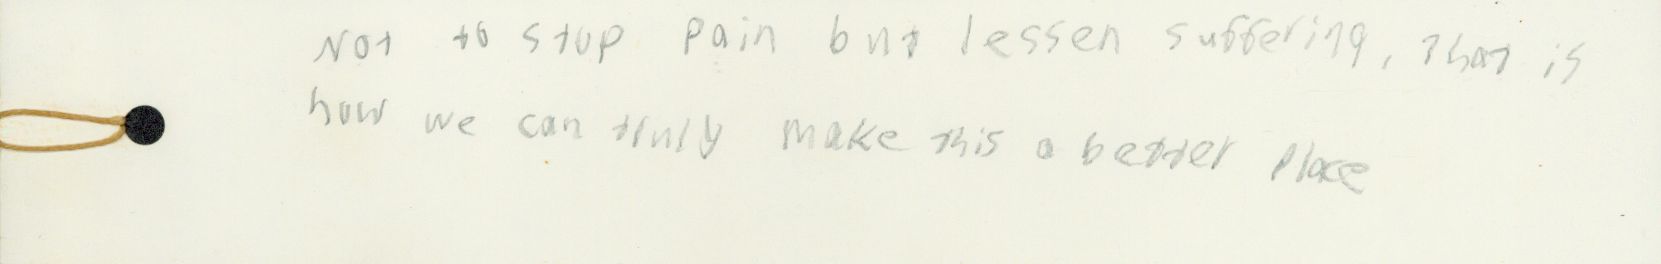 Not to stop pain but lessen suffering, that is
how we can truly make this a better place